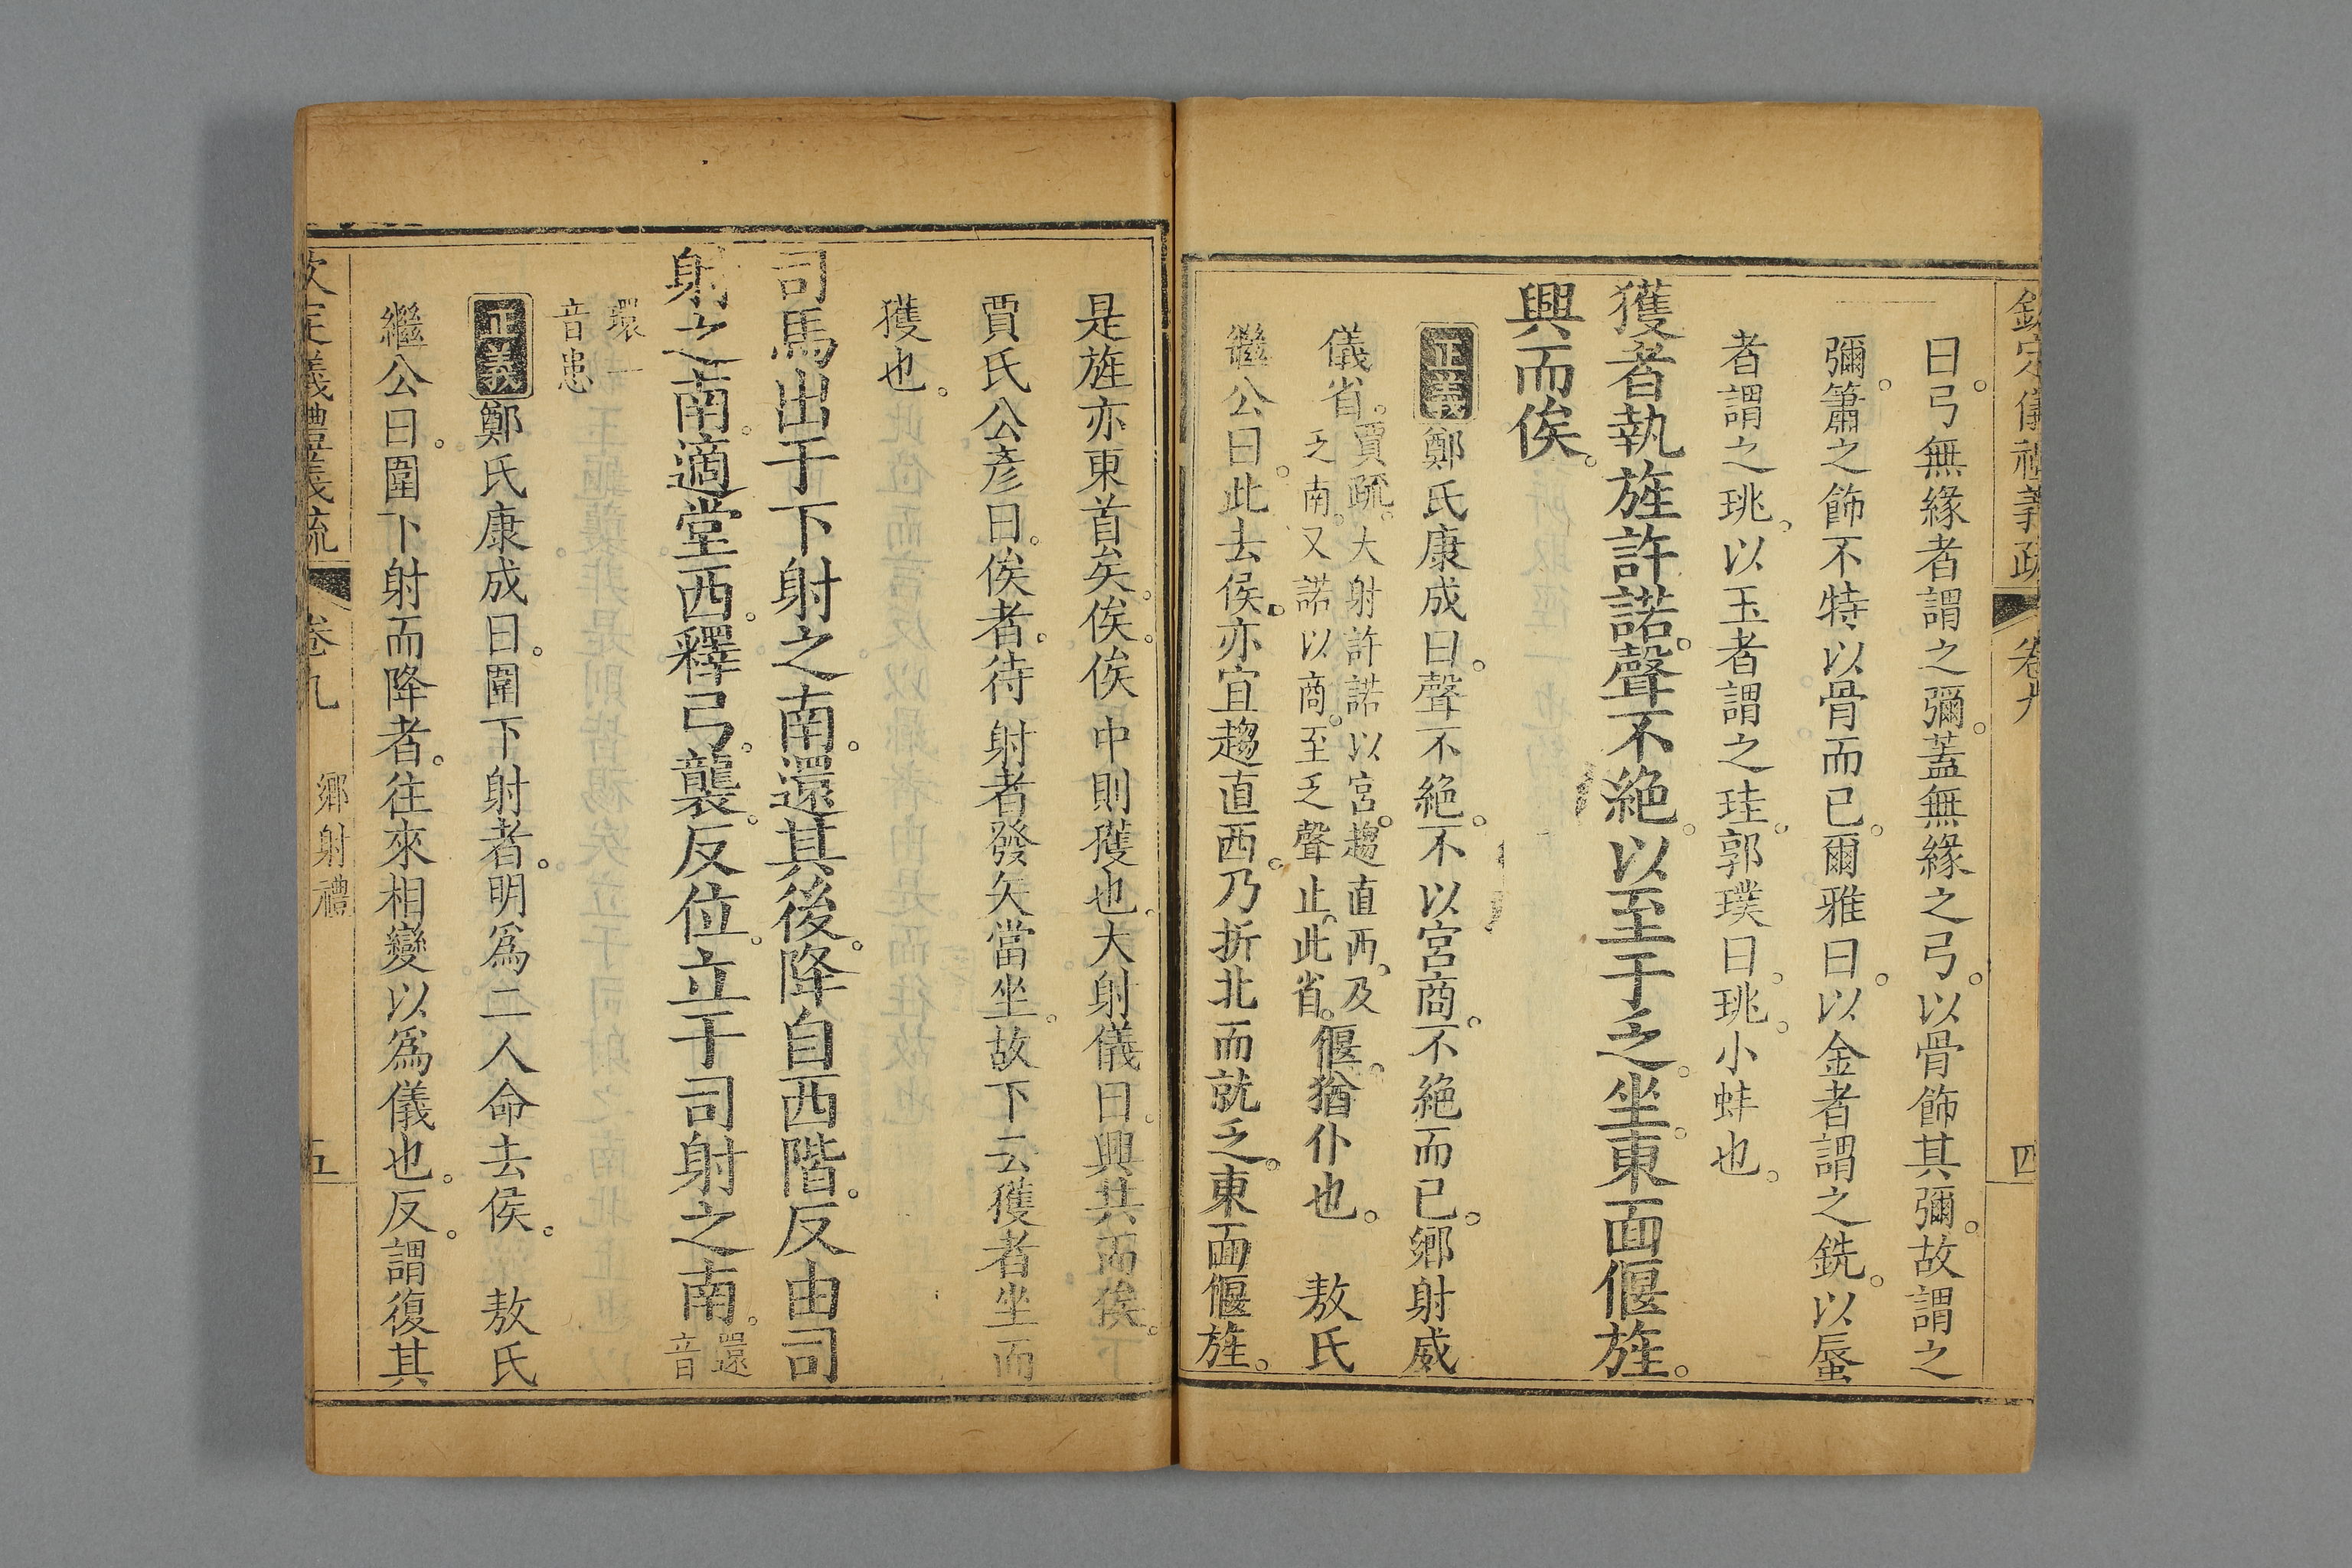 欽定儀禮義疏 卷九 四
曰。弓無緣者謂之彌。蓋無緣之弓。以骨飾其彌。故謂之
彌。簫之飾不特以骨而已。爾雅曰。以金者謂之銑。以蜃
者謂之珧。以玉者謂之珪。郭璞曰。珧。小蚌也。
獲者執旌許諾。聲不絕。以至于乏。坐。東面偃旌。
興而俟。
正義鄭氏康成曰。聲不絕。不以宮商。不絕而已。鄉射威
儀省。賈疏。大射許諾以宮。趨直西。及乏南。又諾以商。至乏聲止。此省。偃。猶仆也。 敖氏
繼公曰。此去侯。亦宜趨直西。乃折北而就乏。東面偃旌。
是旌亦東首矣。俟。俟中則獲也。大射儀曰。興共而俟。
賈氏公彥曰。俟者。待射者發矢當坐。故下云獲者坐而
獲也。
司馬出于下射之南。還其後。降自西階。反由司
射之南。適堂西。釋弓。襲。反位。立于司射之南。還音
環一音患
正義鄭氏康成曰。圍下射者。明爲二人命去侯。 敖氏
繼公曰。圍下射而降者。往來相變以爲儀也。反。謂復其
欽定儀禮義疏 卷九 鄉射禮 五